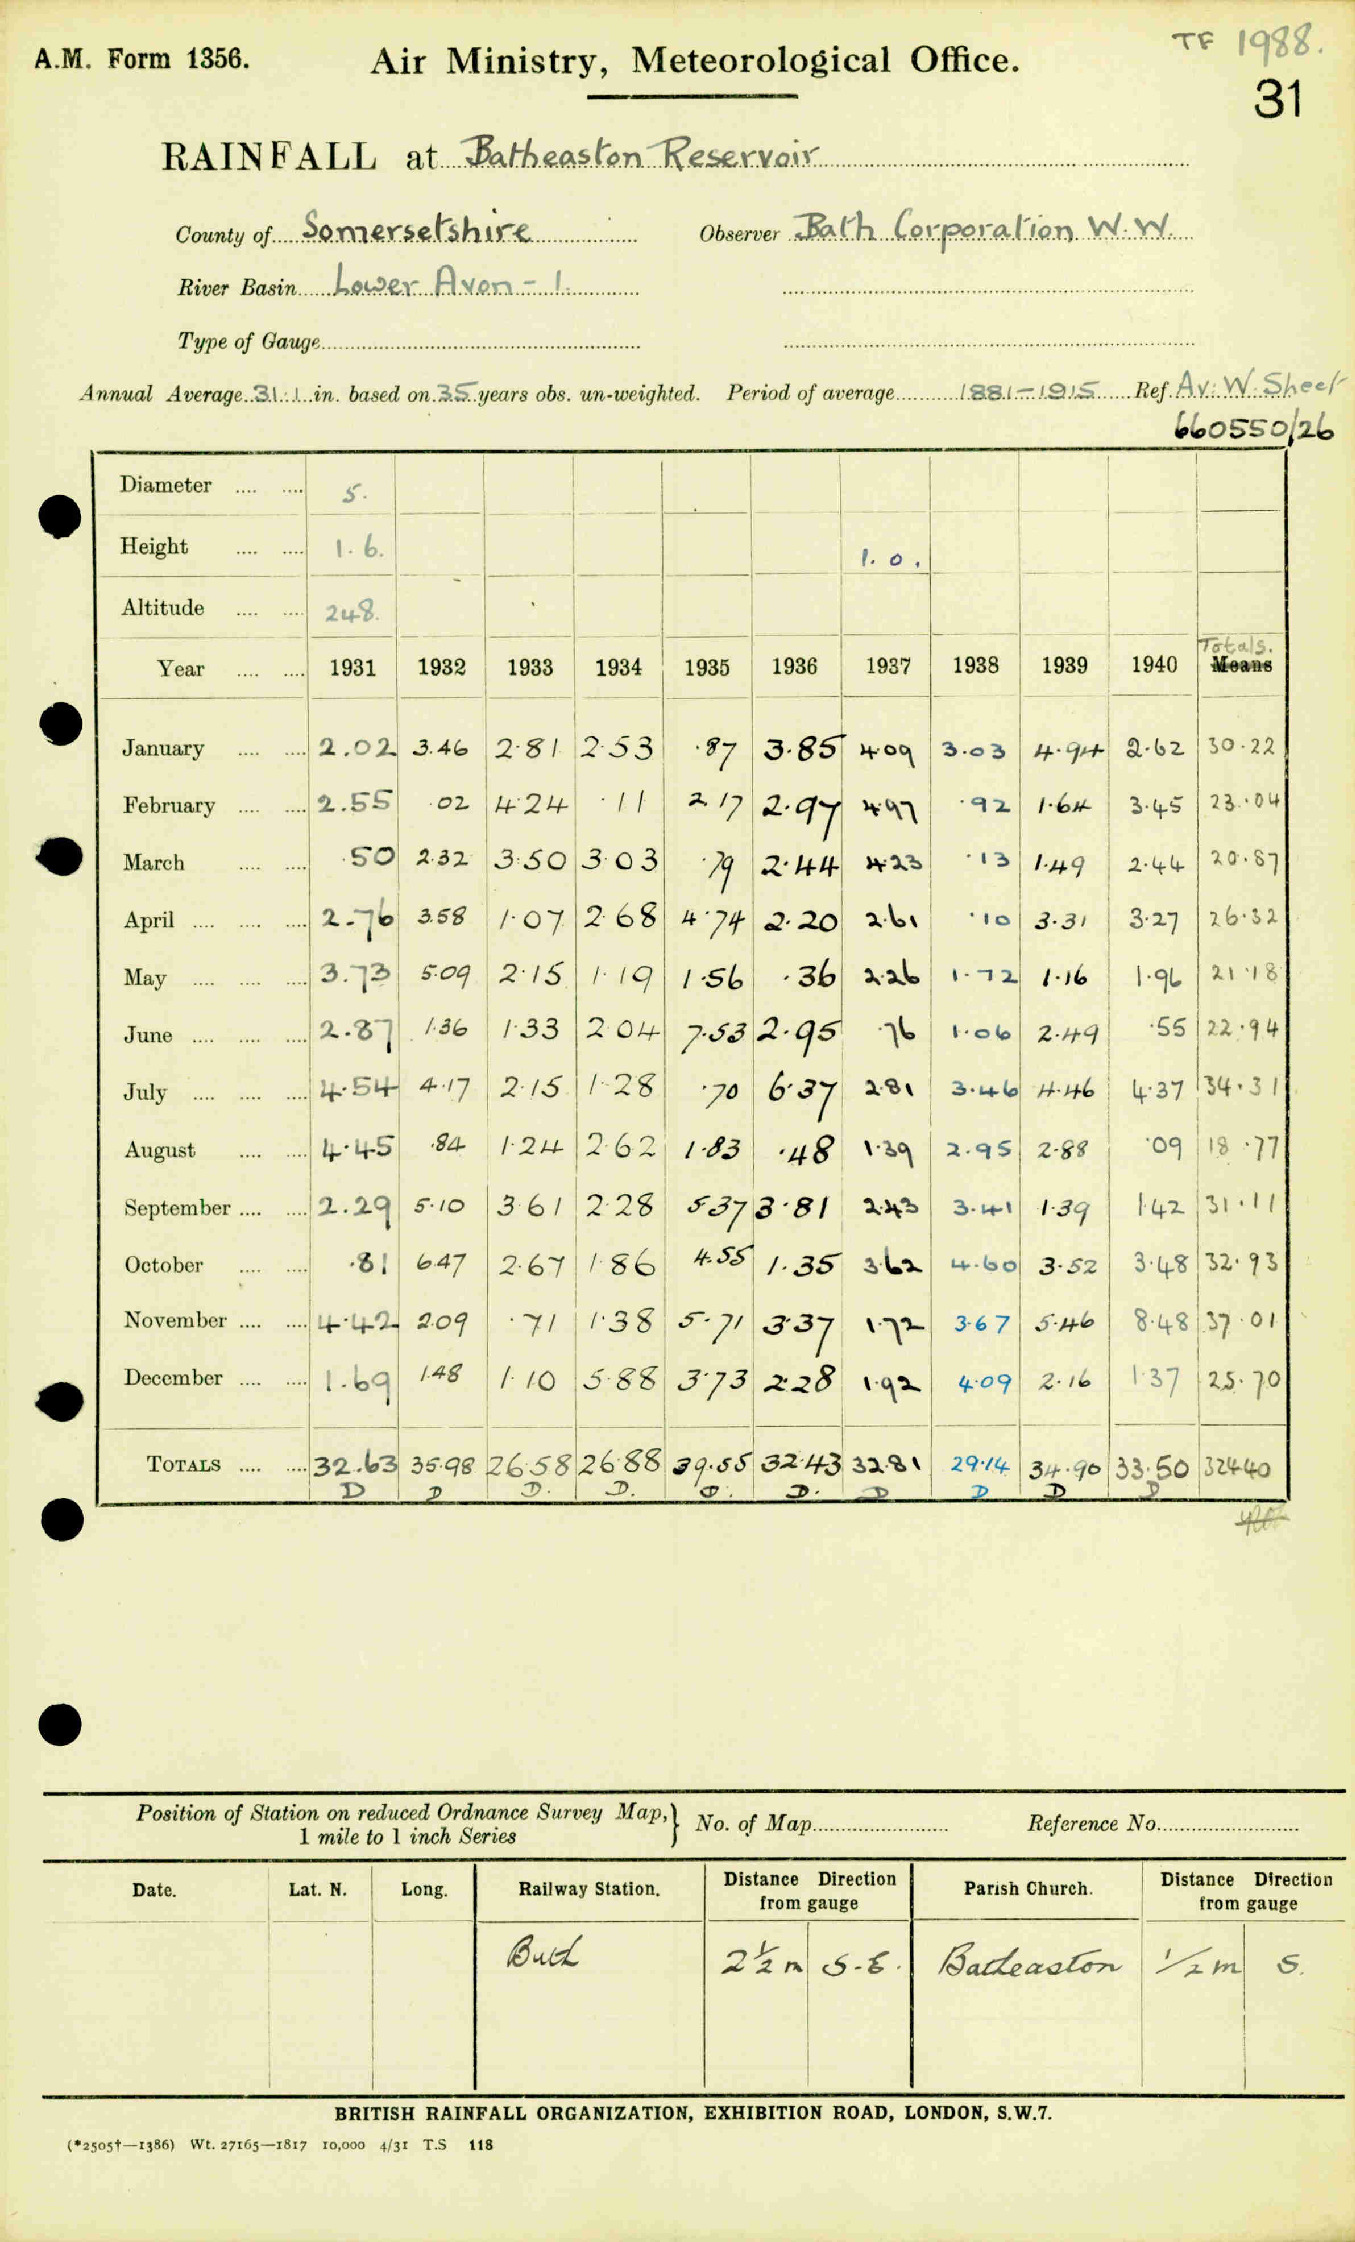 TF 1988.
A.M. Form 1356. Air Ministry, Meteorological Office.
31
RAINFALL at Batheaston Reservoir
County of Somersetshire Observer Bath Corporation W.W.
River Basin Lower Avon - 1.
Type of Gauge
Annual Average 31.1 in. based on 35 years obs. un-weighted. Period of average 1881-1915 Ref. Av. W. Sheet
660550/26
Diameter .... .... 5.
Height .... .... 1. 6. 1. 0.
Altitude .... .... 248.
Totals.
Year .... .... 1931 1932 1933 1934 1935 1936 1937 1938 1939 1940 Means
January .... .... 2.02 3.46 2.81 2.53 .87 3.85 4.09 3.03 4.94 2.62 30.22
February .... .... 2.55 .02 4.24 .11 2.17 2.97 4.97 .92 1.64 3.45 23.04
March .... .... .50 2.32 3.50 3.03 .79 2.44 4.23 .13 1.49 2.44 20.87
April .... .... .... 2.76 3.58 1.07 2.68 4.74 2.20 2.61 .10 3.31 3.27 26.32
May .... .... .... 3.73 5.09 2.15 1.19 1.56 .36 2.26 1.72 1.16 1.96 21.18
June .... .... .... 2.87 1.36 1.33 2.04 7.53 2.95 .76 1.06 2.49 .55 22.94
July .... .... .... 4.54 4.17 2.15 1.28 .70 6.37 2.81 3.46 4.46 4.37 34.31
August .... .... 4.45 .84 1.24 2.62 1.83 .48 1.39 2.95 2.88 .09 18.77
September .... .... 2.29 5.10 3.61 2.28 5.37 3.81 2.43 3.41 1.39 1.42 31.11
October .... .... .81 6.47 2.67 1.86 4.55 1.35 3.62 4.60 3.52 3.48 32.93
November .... .... 4.42 2.09 .71 1.38 5.71 3.37 1.72 3.67 5.46 8.48 37.01
December .... .... 1.69 1.48 1.10 5.88 3.73 2.28 1.92 4.09 2.16 1.37 25.70
TOTALS .... .... 32.63 35.98 26.58 26.88 39.55 32.43 32.81 29.14 34.90 33.50 324.40
D D D. D. D. D. D D D D
Position of Station on reduced Ordnance Survey Map,} No. of Map Reference No.
1 mile to 1 inch Series
Date. Lat. N. Long. Railway Station. Distance Direction from gauge Parish Church. Distance Direction from gauge
Bath 2½ m S-E. Batheaston ½ m S.
BRITISH RAINFALL ORGANIZATION, EXHIBITION ROAD, LONDON, S.W.7.
(*2505†—1386) Wt. 27165—1817 10,000 4/31 T.S 118